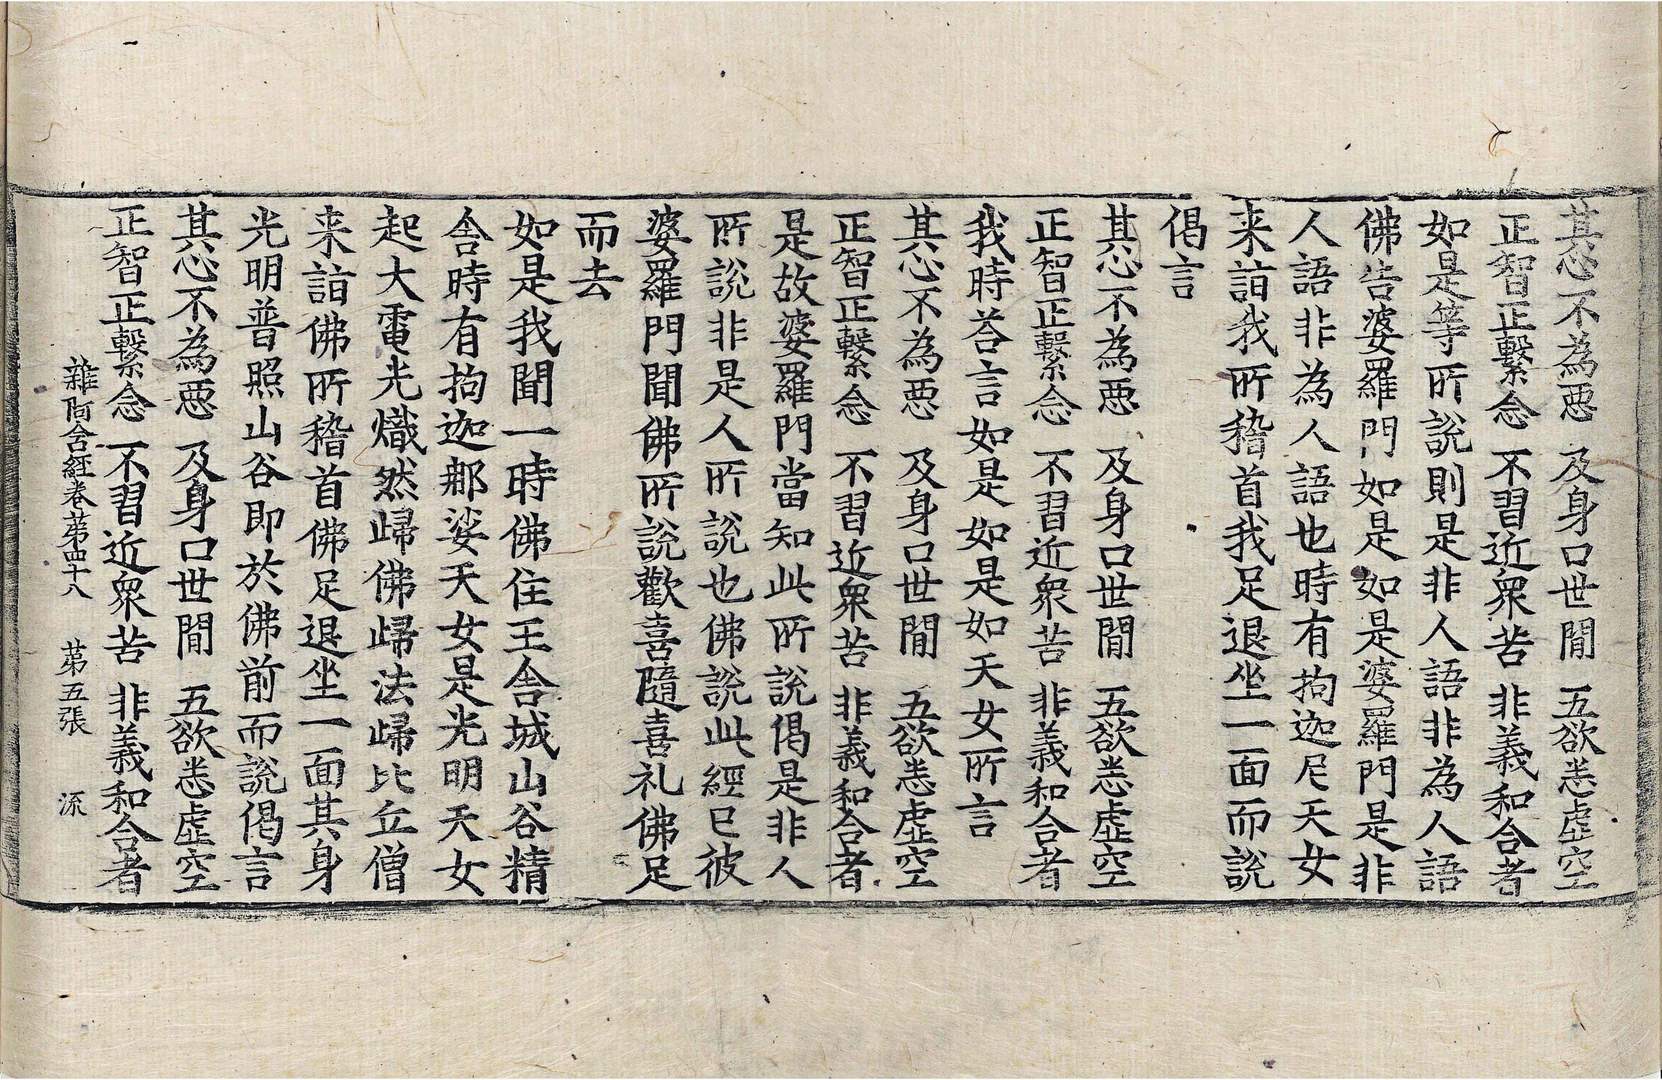 其心不為惡 及身口世間 五欲悉虛空
正智正繫念 不習近衆苦 非義和合者
如是等所說則是非人語非為人語
佛告婆羅門如是如是婆羅門是非
人語非為人語也時有拘迦尼天女
来詣我所稽首我足退坐一面而說
偈言
其心不為惡 及身口世間 五欲悉虛空
正智正繫念 不習近衆苦 非義和合者
我時荅言如是如是如天女所言
其心不為惡 及身口世間 五欲悉虛空
正智正繫念 不習近衆苦 非義和合者
是故婆羅門當知此所說偈是非人
所說非是人所說也佛說此經已彼
婆羅門聞佛所說歡喜隨喜礼佛足
而去
如是我聞一時佛住王舍城山谷精
舍時有拘迦那娑天女是光明天女
起大電光熾然歸佛歸法歸比丘僧
来詣佛所稽首佛足退坐一面其身
光明普照山谷即於佛前而說偈言
其心不為惡 及身口世間 五欲悉虛空
正智正繫念 不習近衆苦 非義和合者
雜阿含經卷第四十八 第五張 源